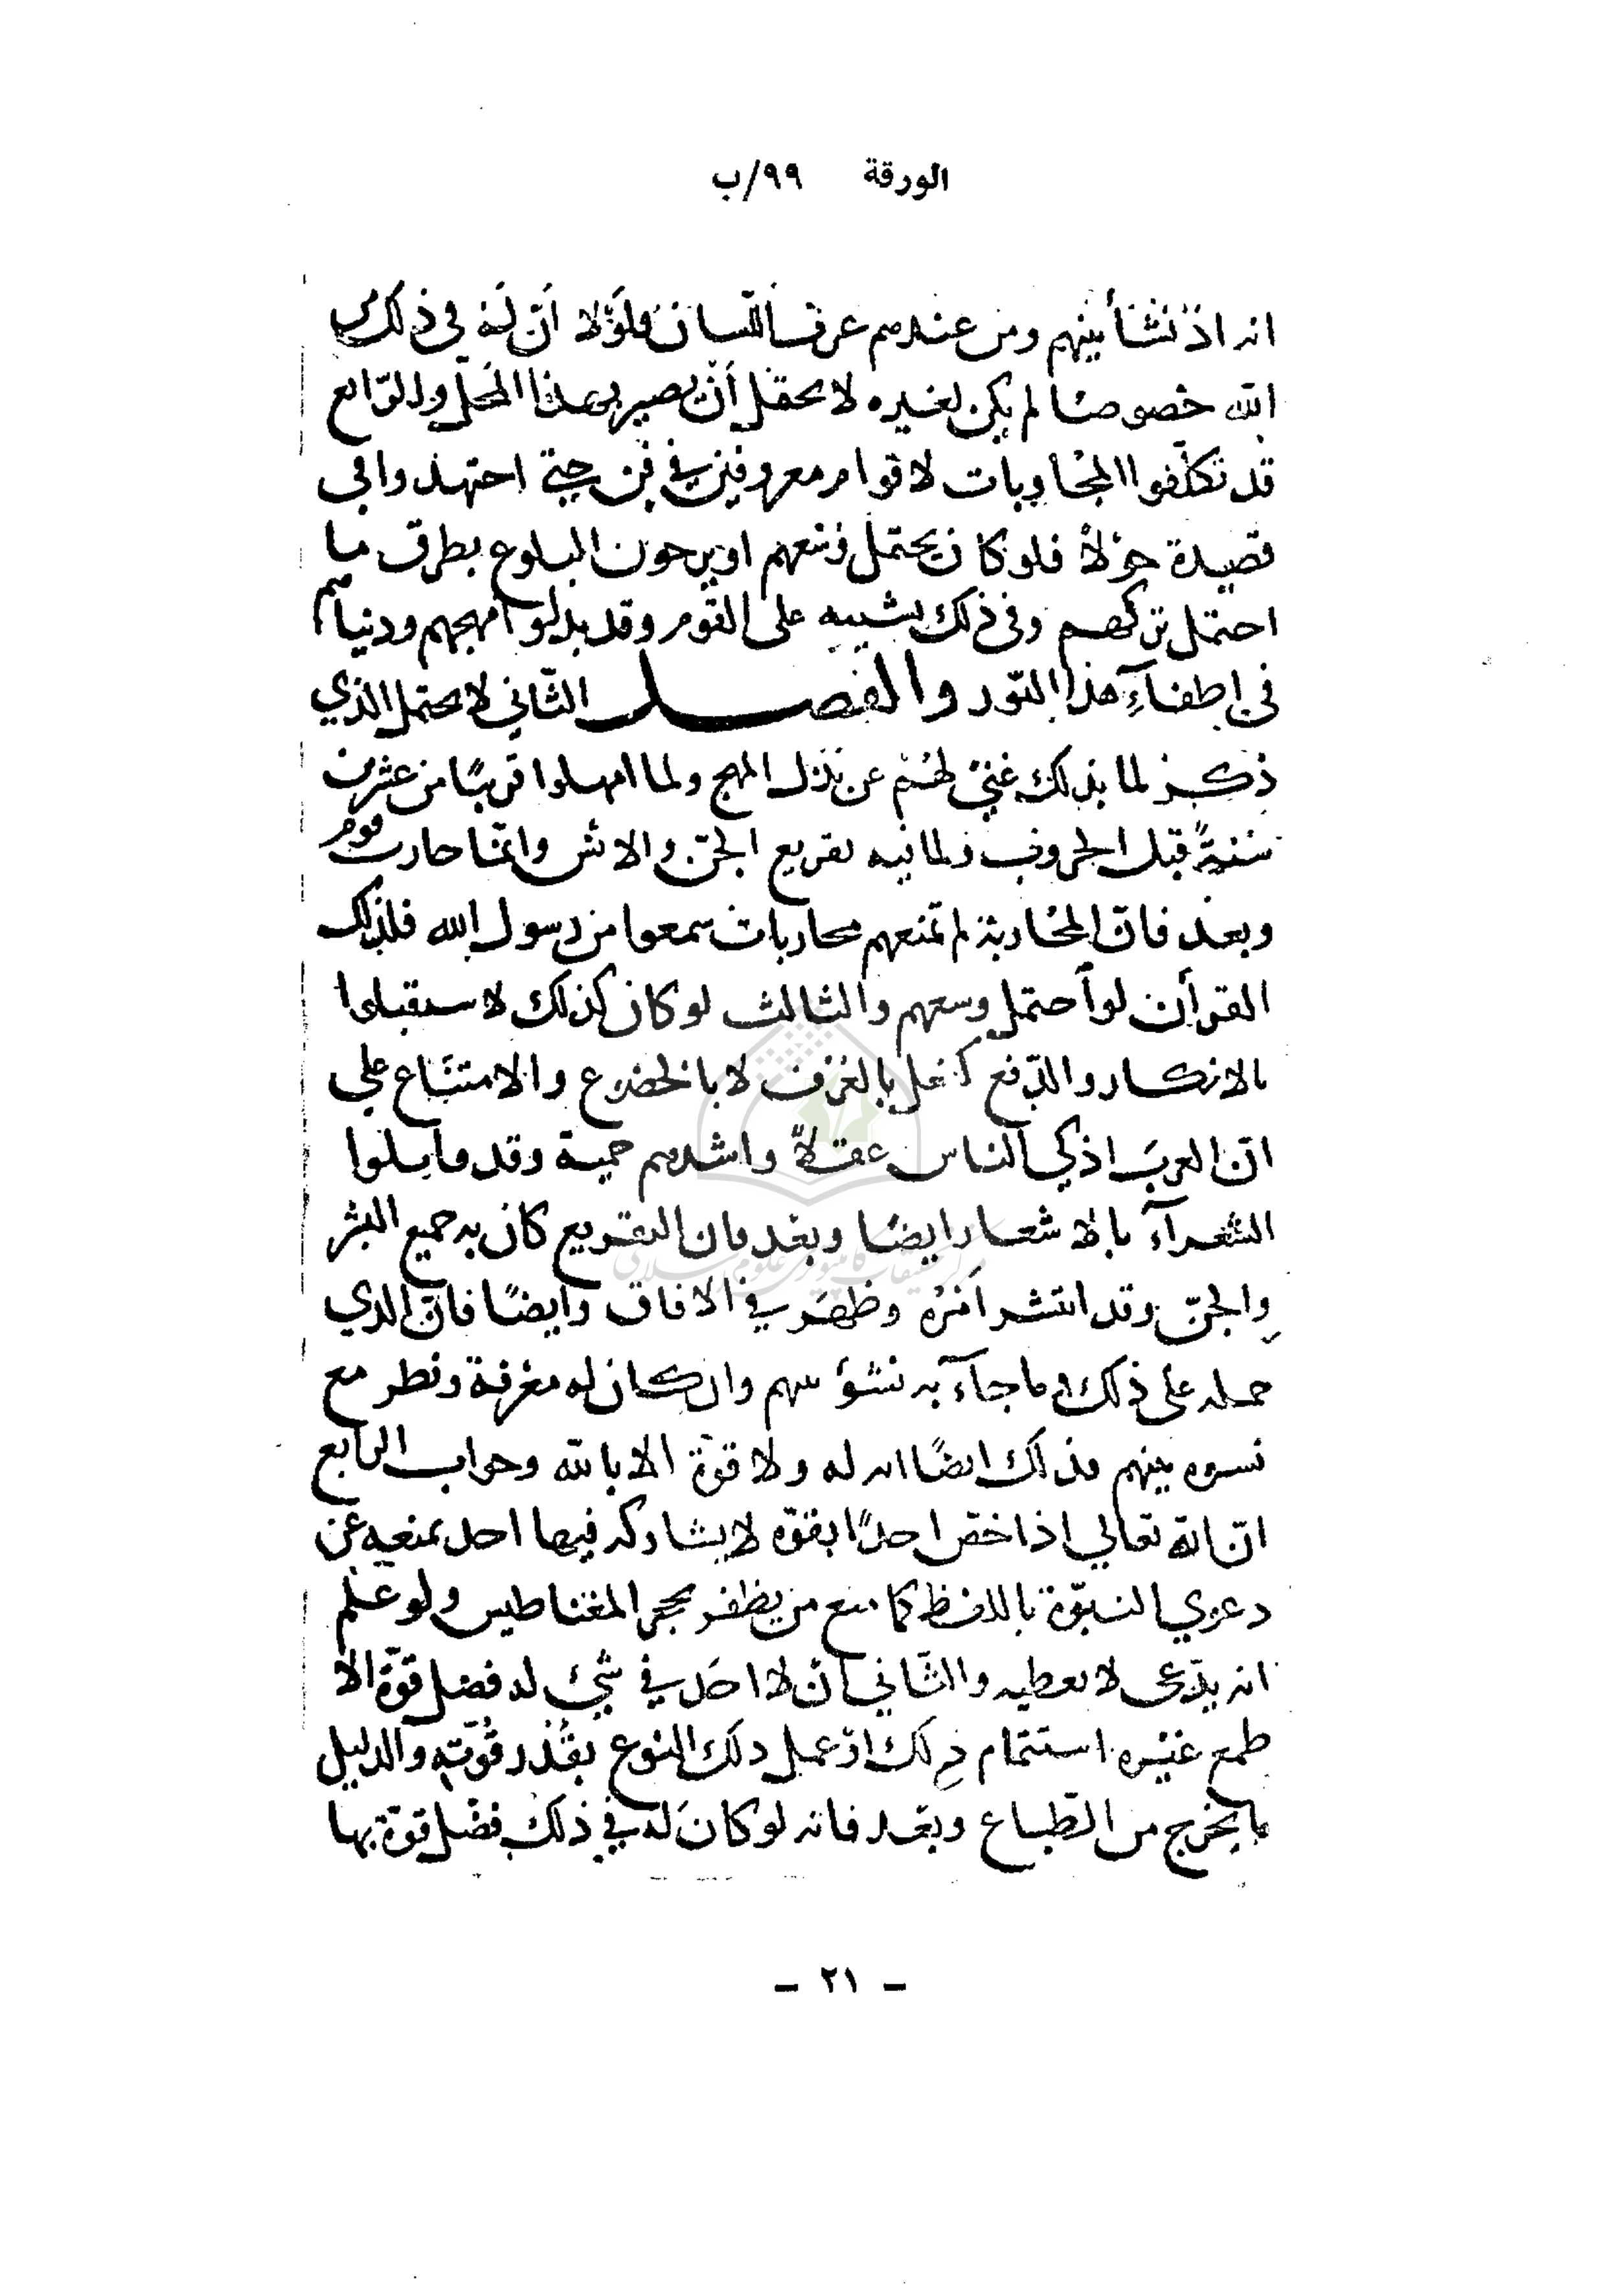 الورقة ٩٩/ب
انه اذ نشأ بينهم ومن عندهم عرف اللسان فلولا أن له في ذلك من
الله خصوصا لم يكن لغيره لا يحتمل أن يصير بهذا المحل والرابع
قد تكلفوا المجاوبات لاقوام معروفين في فن حتى اجتهدوا في
قصيدة حولا فلو كان يحتمل وسعهم او يرجون البلوغ بطرق ما
احتمل تركهم وفي ذلك على القوم وقد بذلوا مهجهم ودنياهم
في إطفاء هذا النور والفصل الثاني لا يحتمل الذي
ذكر لما بذلك غنى لهم عن بذل المهج ولما امهلوا قريبا من عشرين
سنة قبل الحروب ولما فيه تقريع الجن والانس وانما حارب قوم
وبعد فان المحاربة لم تمنعهم محاربات سمعوا من رسول الله فلذلك
القرآن لو احتمل وسعهم والثالث لو كان كذلك لاستقبلوا
بالانكار والدفع لا بالخضوع والامتناع على
ان العرب اذكى الناس عقلا واشدهم حمية وقد قابلوا
الشعراء بالاشعار ايضا وبعد فان التقريع كان به جميع البشر
والجن وقد انتشر امره وظهر في الافاق وايضا فان الذي
حمله على ذلك في ما جاء به نشؤ بينهم وان كان له معرفة ونظر مع
نسوه بينهم فذلك ايضا انه له ولا قوة الا بالله وجواب الرابع
ان الله تعالى اذا خص احدا بقوة لا يشاركه فيها احد يمنعه عن
دعوى النبوة باللفظ كما منع من يظفر بحجر المغناطيس ولو علم
انه يدعى لا يعطيه والثاني ان لا احد في شيء له فضل قوة الا
طمع غيره استتمام ذلك اذ عمل ذلك النوع بقدر قوته والدليل
ما يخرج من الطباع وبعد فانه لو كان له في ذلك فضل قوة بها
- ٢١ -